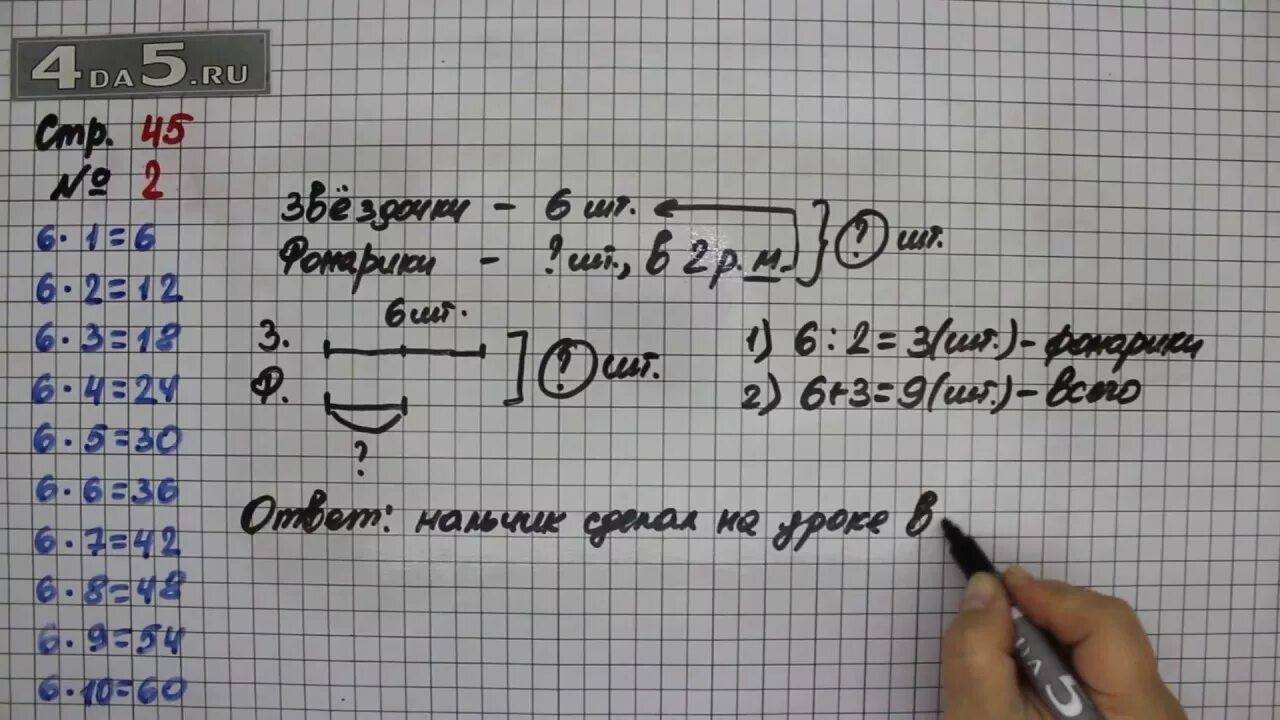 4DA5.RU
Стр. 45
№ 2
6·1=6
6·2=12
6·3=18
6·4=24
6·5=30
6·6=36
6·7=42
6·8=48
6·9=54
6·10=60
Звёздочки - 6 шт.
Фонарики - ? шт., в 2 р. м. ? шт.
6 шт.
З.
Ф. ? шт.
?
1) 6:2=3(шт.)- фонарики
2) 6+3=9(шт.)- всего
Ответ: мальчик сделал на уроке в
DA5